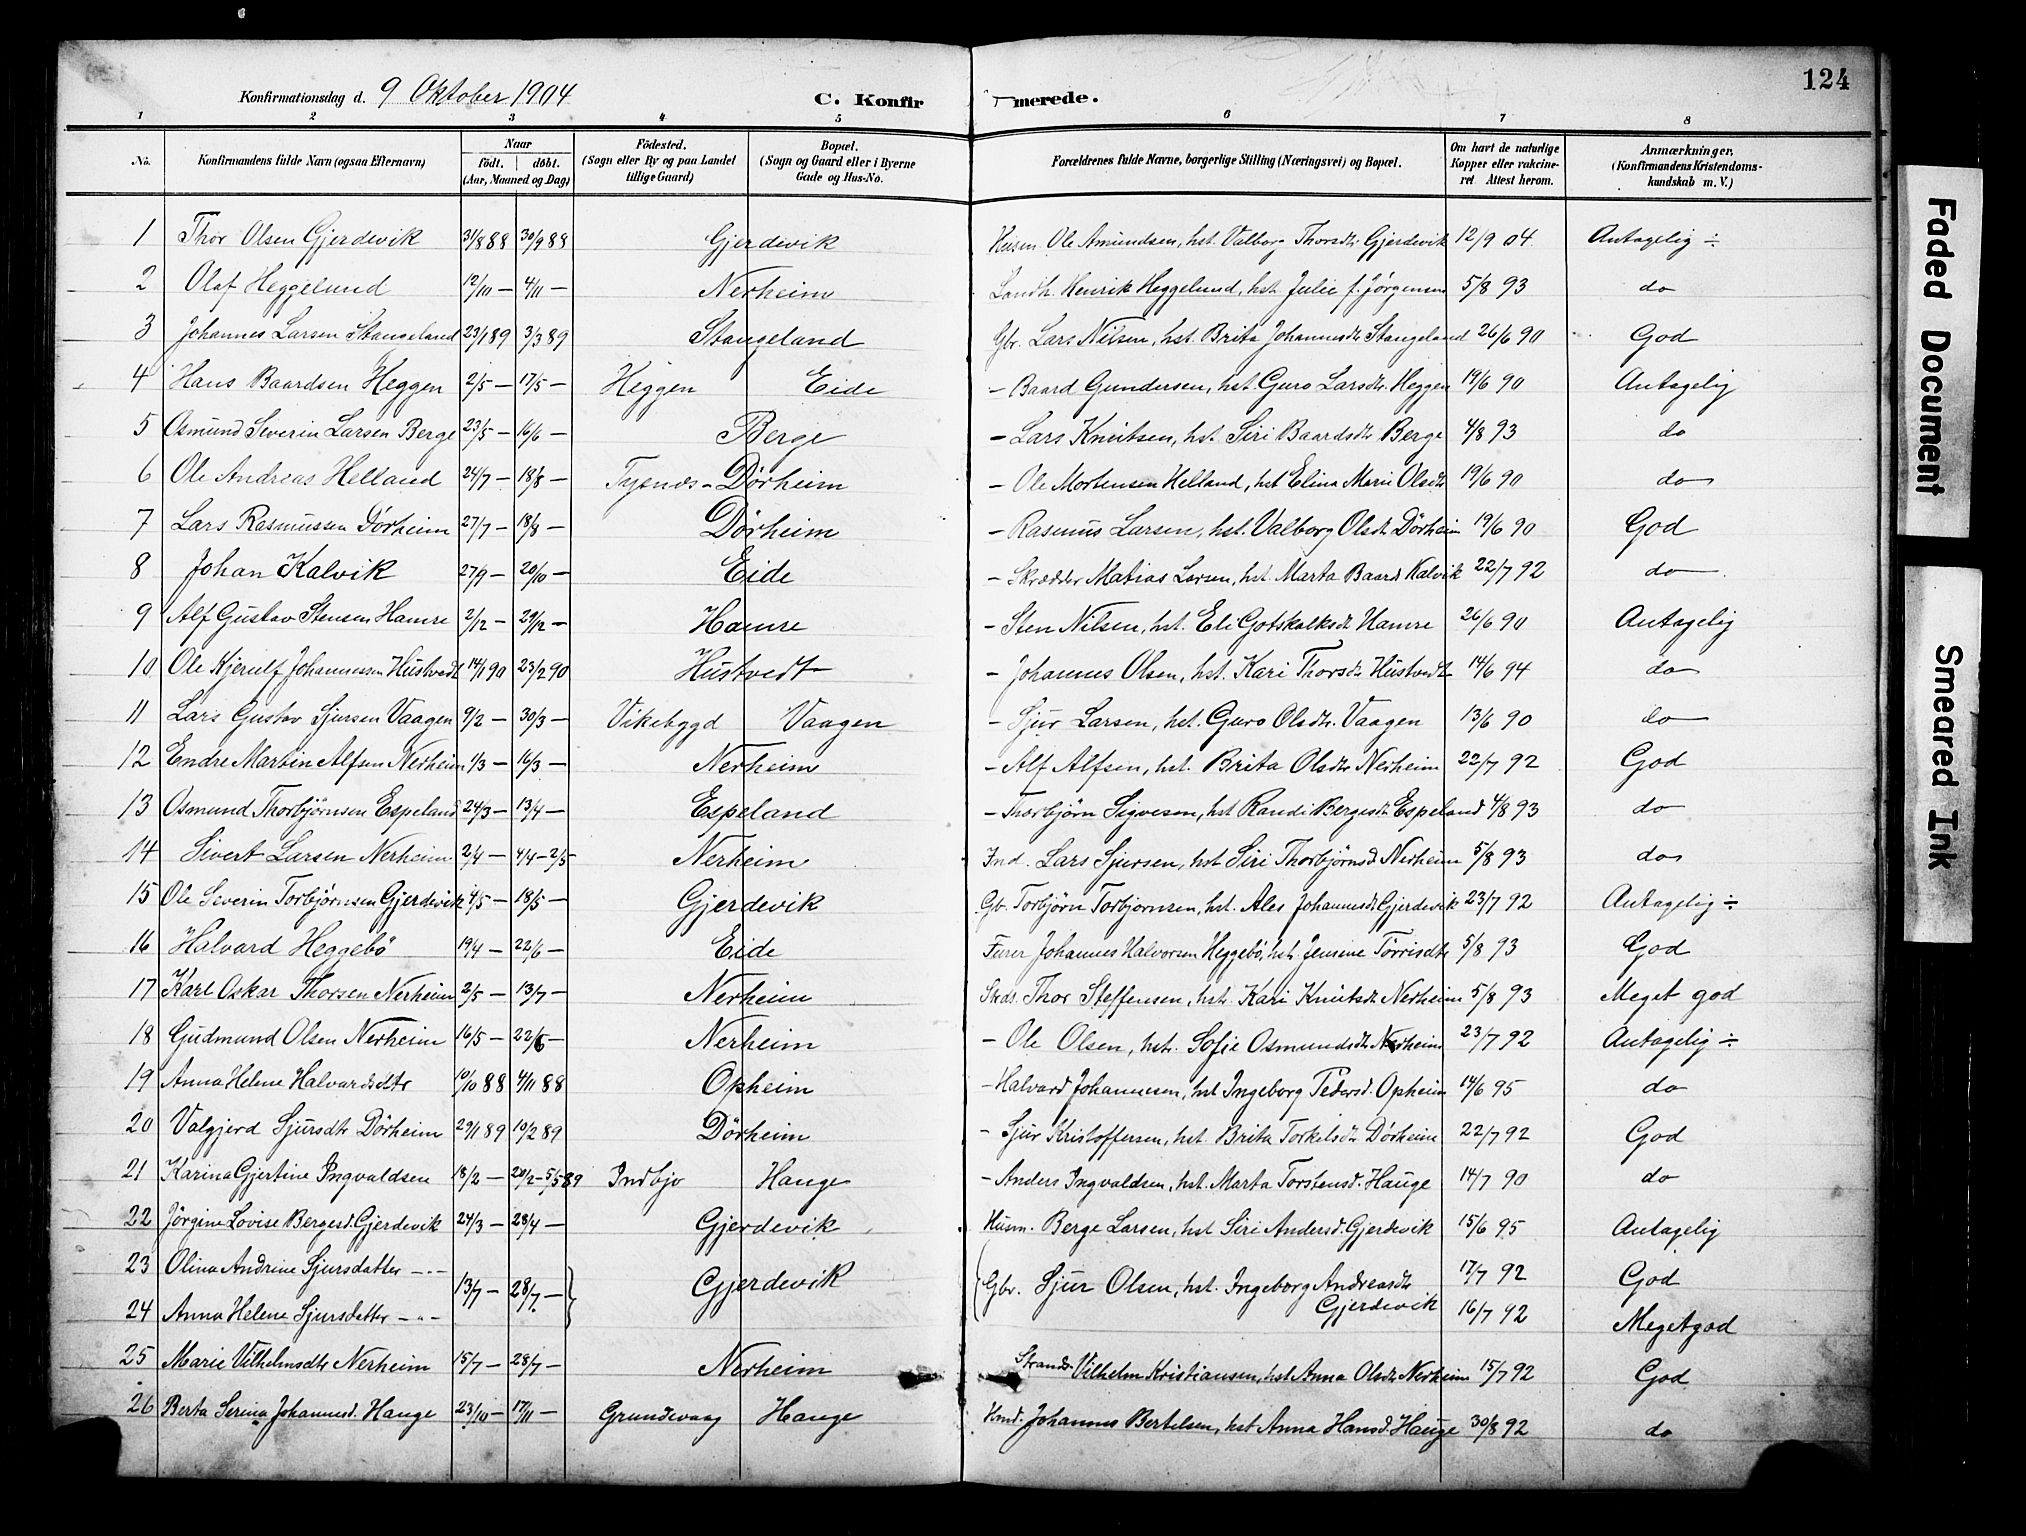 124
Konfirmationsdag d. 9 Oktober 1904 C. Konfir merede.
1 2 3 4 5 6 7 8
No. Konfirmandens fulde Navn (ogsaa Efternavn) Naar födt. döbt. (Aar, Maaned og Dag) Födested. (Sogn eller By og paa Landet tillige Gaard) Bopæl. (Sogn og Gaard eller i Byerne Gade og Hus-No. Forældrenes fulde Navne, borgerlige Stilling (Næringsvei) og Bopæl. Om havt de naturlige Kopper eller vakcineret Attest herom. Anmærkninger, (Konfirmandens Kristendomskundskab m. V.)
1 Thor Olsen Gjerdevik 31/8 88 30/9 88 Gjerdevik Husm. Ole Amundsen, hst. Valborg Thorsdtr Gjerdevik 12/9 04 Antagelig ÷
2 Olaf Heggelund 12/10 — 4/11 — Nerheim Landh. Henrik Heggelund, hst. Julie f. Jørgensen 5/8 93 do
3 Johannes Larsen Stangeland 23/1 89 3/3 89 Stangeland Gbr. Lars Nilsen, hst. Brita Johannesdtr Stangeland 26/6 90 God
4 Hans Baardsen Heggen 2/5 — 17/5 — Heggen Eide — Baard Gundersen, hst. Guro Larsdtr. Heggen 19/6 90 Antagelig
5 Osmund Severin Larsen Berge 23/5 — 16/6 — Berge — Lars Knutsen, hst. Siri Baardsdtr Berge 4/8 93 do
6 Ole Andreas Helland 24/7 — 18/8 — Tysnæs - Dörheim — Ole Mortensen Helland, hst Elina Marie Olsdtr 19/6 90 do
7 Lars Rasmussen Dörheim 27/7 — 18/8 — Dörheim — Rasmus Larsen, hst. Valborg Olsdtr Dörheim 19/6 90 God
8 Johan Kalvik 27/9 — 20/10 — Eide — Skrædder Matias Larsen, hst. Marta Baard Kalvik 22/7 92 do
9 Alf Gustav Stensen Hamre 2/12 — 29/12 — Hamre — Sten Nilsen, hst. Eli Gotskalksdtr Hamre 26/6 90 Antagelig
10 Ole Kjerulf Johannessen Hustvedt 14/1 90 23/2 90 Hustvedt — Johannes Olsen, hst. Kari Thorsdtr Hustvedt 14/6 94 do
11 Lars Gustav Sjursen Vaagen 9/2 — 30/3 — Vikebygd Vaagen — Sjur Larsen, hst. Guro Olsdtr. Vaagen 13/6 90 do
12 Endre Martin Alfsen Nerheim 1/3 — 16/3 — Nerheim — Alf Alfsen, hst. Brita Olsdtr Nerheim 22/7 92 God
13 Osmund Thorbjörnsen Espeland 24/3 — 13/4 — Espeland — Thorbjörn Sigvesen, hst Randi Bergesdtr Espeland 4/8 93 do
14 Sivert Larsen Nerheim 2/4 — 4/4 — 2/5 — Nerheim Ind. Lars Sjursen, hst Siri Thorbjörnsd. Nerheim 5/8 93 do
15 Ole Severin Torbjörnsen Gjerdevik 4/5 — 18/5 — Gjerdevik Gb. Torbjörn Torbjornsen, hst. Ales Johannesdtr Gjerdevik 23/7 92 Antagelig ÷
16 Halvard Heggebö 19/4 — 22/6 — Eide Furer Johannes Halvorsen Heggebö, hst. Jensine Törrisdtr 5/8 93 God
17 Karl Oskar Thorsen Nerheim 2/5 — 13/7 — Nerheim Thor Steffensen, hst. Kari Knutsdtr Nerheim 5/8 93 Meget god
18 Gudmund Olsen Nerheim 16/5 — 22/6 — Nerheim — Ole Olsen, hst. Sofie Osmundsdtr Nerheim 23/7 92 Antagelig ÷
19 Anna Helene Halvardsdtr 10/10 88 4/11 88 Opheim — Halvard Johannesen, hst Ingeborg Pedersd. Opheim 14/6 95 do
20 Valgjerd Sjursdtr Dörheim 29/1 89 10/2 89 Dörheim — Sjur Kristoffersen, hst. Brita Torkelsdtr Dörheim 22/7 92 God
21 Karina Gjertine Ingvaldsen 18/2 — 20/2 — 5/5 89 Indbjo Hauge — Anders Ingvaldsen, hst. Marta Torstensd. Hauge 14/7 90 do
22 Jörgine Lovise Bergesd. Gjerdevik 24/3 — 28/4 — Gjerdevik Husm. Berge Larsen, hst Siri Andersd. Gjerdevik 15/6 95 Antagelig
23 Olina Andrine Sjursdatter — " — 13/7 — 28/7 — Gjerdevik Gbr. Sjur Olsen, hst. Ingeborg Andreasdtr Gjerdevik 17/7 92 God
24 Anna Helene Sjursdatter — " — 16/7 92 Meget god
25 Marie Vilhelmsdtr Nerheim 15/7 — 28/7 — Nerheim Strands. Vilhelm Kristiansen, hst Anna Olsdtr Nerheim 15/7 92 God
26 Berta Serina Johannesd. Hauge 23/10 — 17/11 — Grundevaag Hauge Johannes Bertelsen, hst Anna Hansd. Hauge 30/8 92 do
Faded Document
Smeared Ink